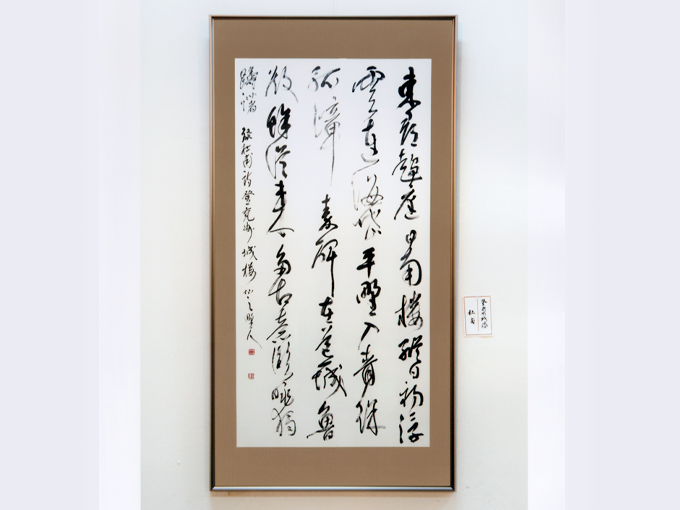 東郡趨庭日南樓縱目初浮
雲連海岱平野入青徐
孤嶂秦碑在荒城魯
殿餘從来多古意臨眺獨
躊躇 杜甫詩登兗州城樓
登兗州城楼
杜甫